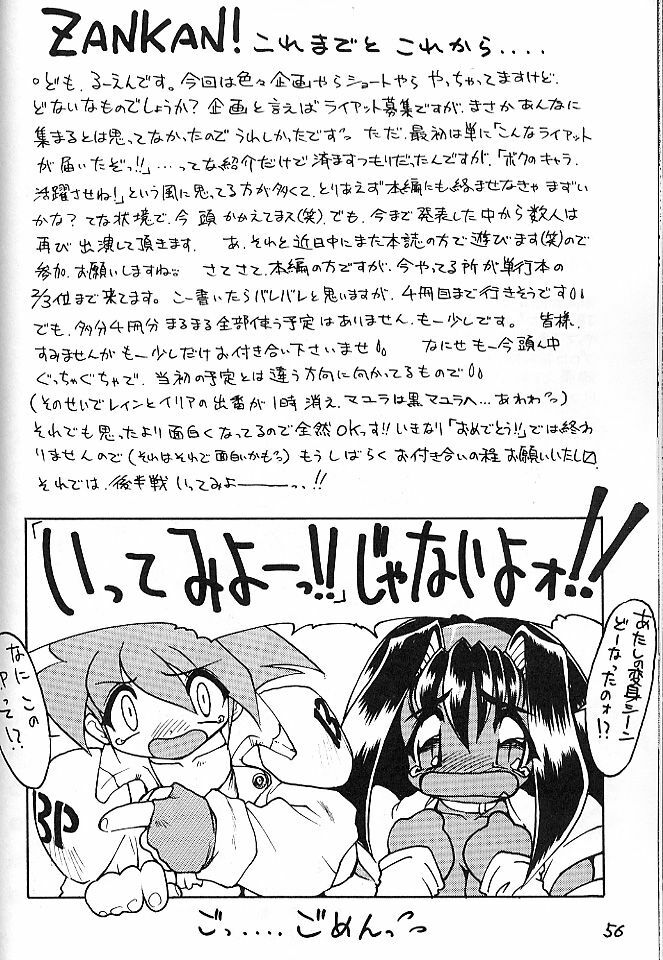 ZANKAN! これまでと これから....
ども、るーえんです。今回は色々企画やらショートやら やっちゃってますけど、
どないなものでしょうか? 企画と言えばライアット募集ですが、まさかあんなに
集まるとは思ってなかったので うれしかったですっっ ただ、最初は単に「こんなライアット
が届いたぞっ!!」…ってな紹介だけで済ますつもりだったんですが、「ボクのキャラ、
活躍させね!」という風に思ってる方が多くて、とりあえず本編にも絡ませなきゃ まずい
かな? てな状況で、今 頭 かかえてまス(笑)。でも、今まで発表した中から数人は
再び 出演して頂きます。 あ、それと近日中にまた本誌の方で遊びます(笑)ので
参加、お願いしますねっっ さてさて、本編の方ですが、今やってる所が単行本の
2/3位まで来てます。こー書いたらバレバレと思いますが、4冊目まで行きそうです
でも、多分4冊分 まるまる 全部使う予定は ありません。もー少しです。 皆様、
すみませんが もー少しだけ お付き合い下さいませ なにせ もー今 頭ん中
ぐっちゃぐちゃで、当初の予定とは違う方向に向かってるもので
(そのせいでレインとイリアの出番が1時 消え、マユラは黒マユラへ…あわわっっ)
それでも思ったより面白くなってるので全然OKっす!! いきなり「おめでとう!!」では終わ
りませんので(それはそれで面白いかもっっ) もうしばらく お付き合いの程 お願いいたし〼。
それでは、後半戦 いってみよーーーっ!!
「いってみよーっ!!」じゃないよォ!!
あたしの変身シーン
どーなったのォ!?
なに この
Pって!?
B
BP
ごっ....ごめんっっ
56